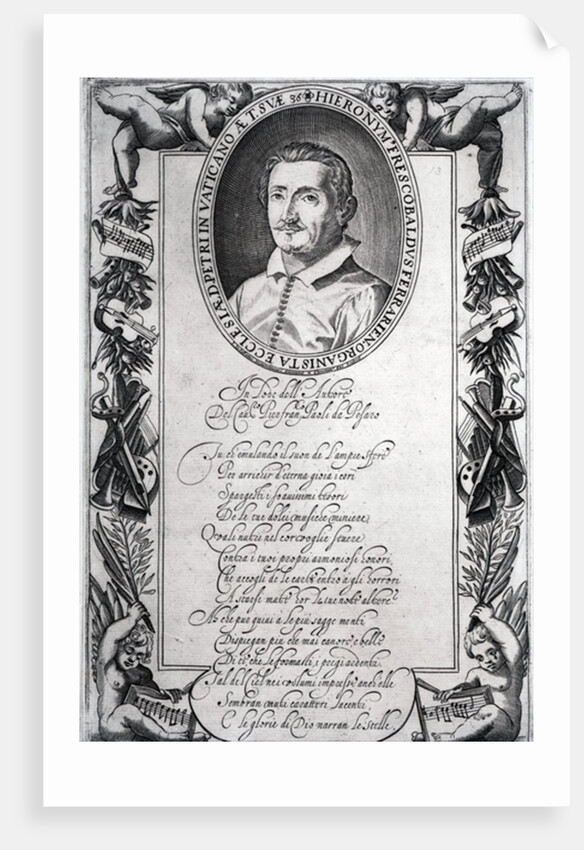 HIERONYM' FRESCOBALDVS FERRARIEN. ORGANISTA ECCLESIÆ D. PETRI IN VATICANO ÆT. SVÆ 36
13
In Lode dell' Autore
Del Cau.ro Pierfran.co Paoli da Pesaro
Tu ch' emulando il suon de l'ampie sfere
Per arrichir d'eterna gioia i cori
Spargesti i soauissimi tesori
De le tue dolci musiche miniere,
Quali nutri nel cor voglie seuere
Contra i tuoi proprj armoniosi honori,
Che accogli de le carte entro a gli horrori
A starsi mute hor le tue note altere?
Ah che pur quiui a le più sagge menti
Dispiegan più che mai canore, e belle
Di te, che le formasti, i pregi ardenti.
Tal del Ciel nei volumi impresse anch' elle
Sembran muti caratteri lucenti,
E le glorie di Dio narran le stelle.